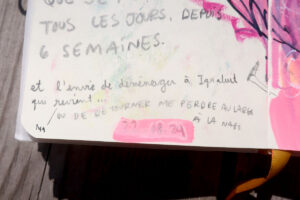 TOUS LES JOURS, DEPUIS
6 SEMAINES.
et l'envie de déménager à Iqaluit
qui revient...
OU DE RETOURNER ME PERDRE AU LARGE
À LA NAGE